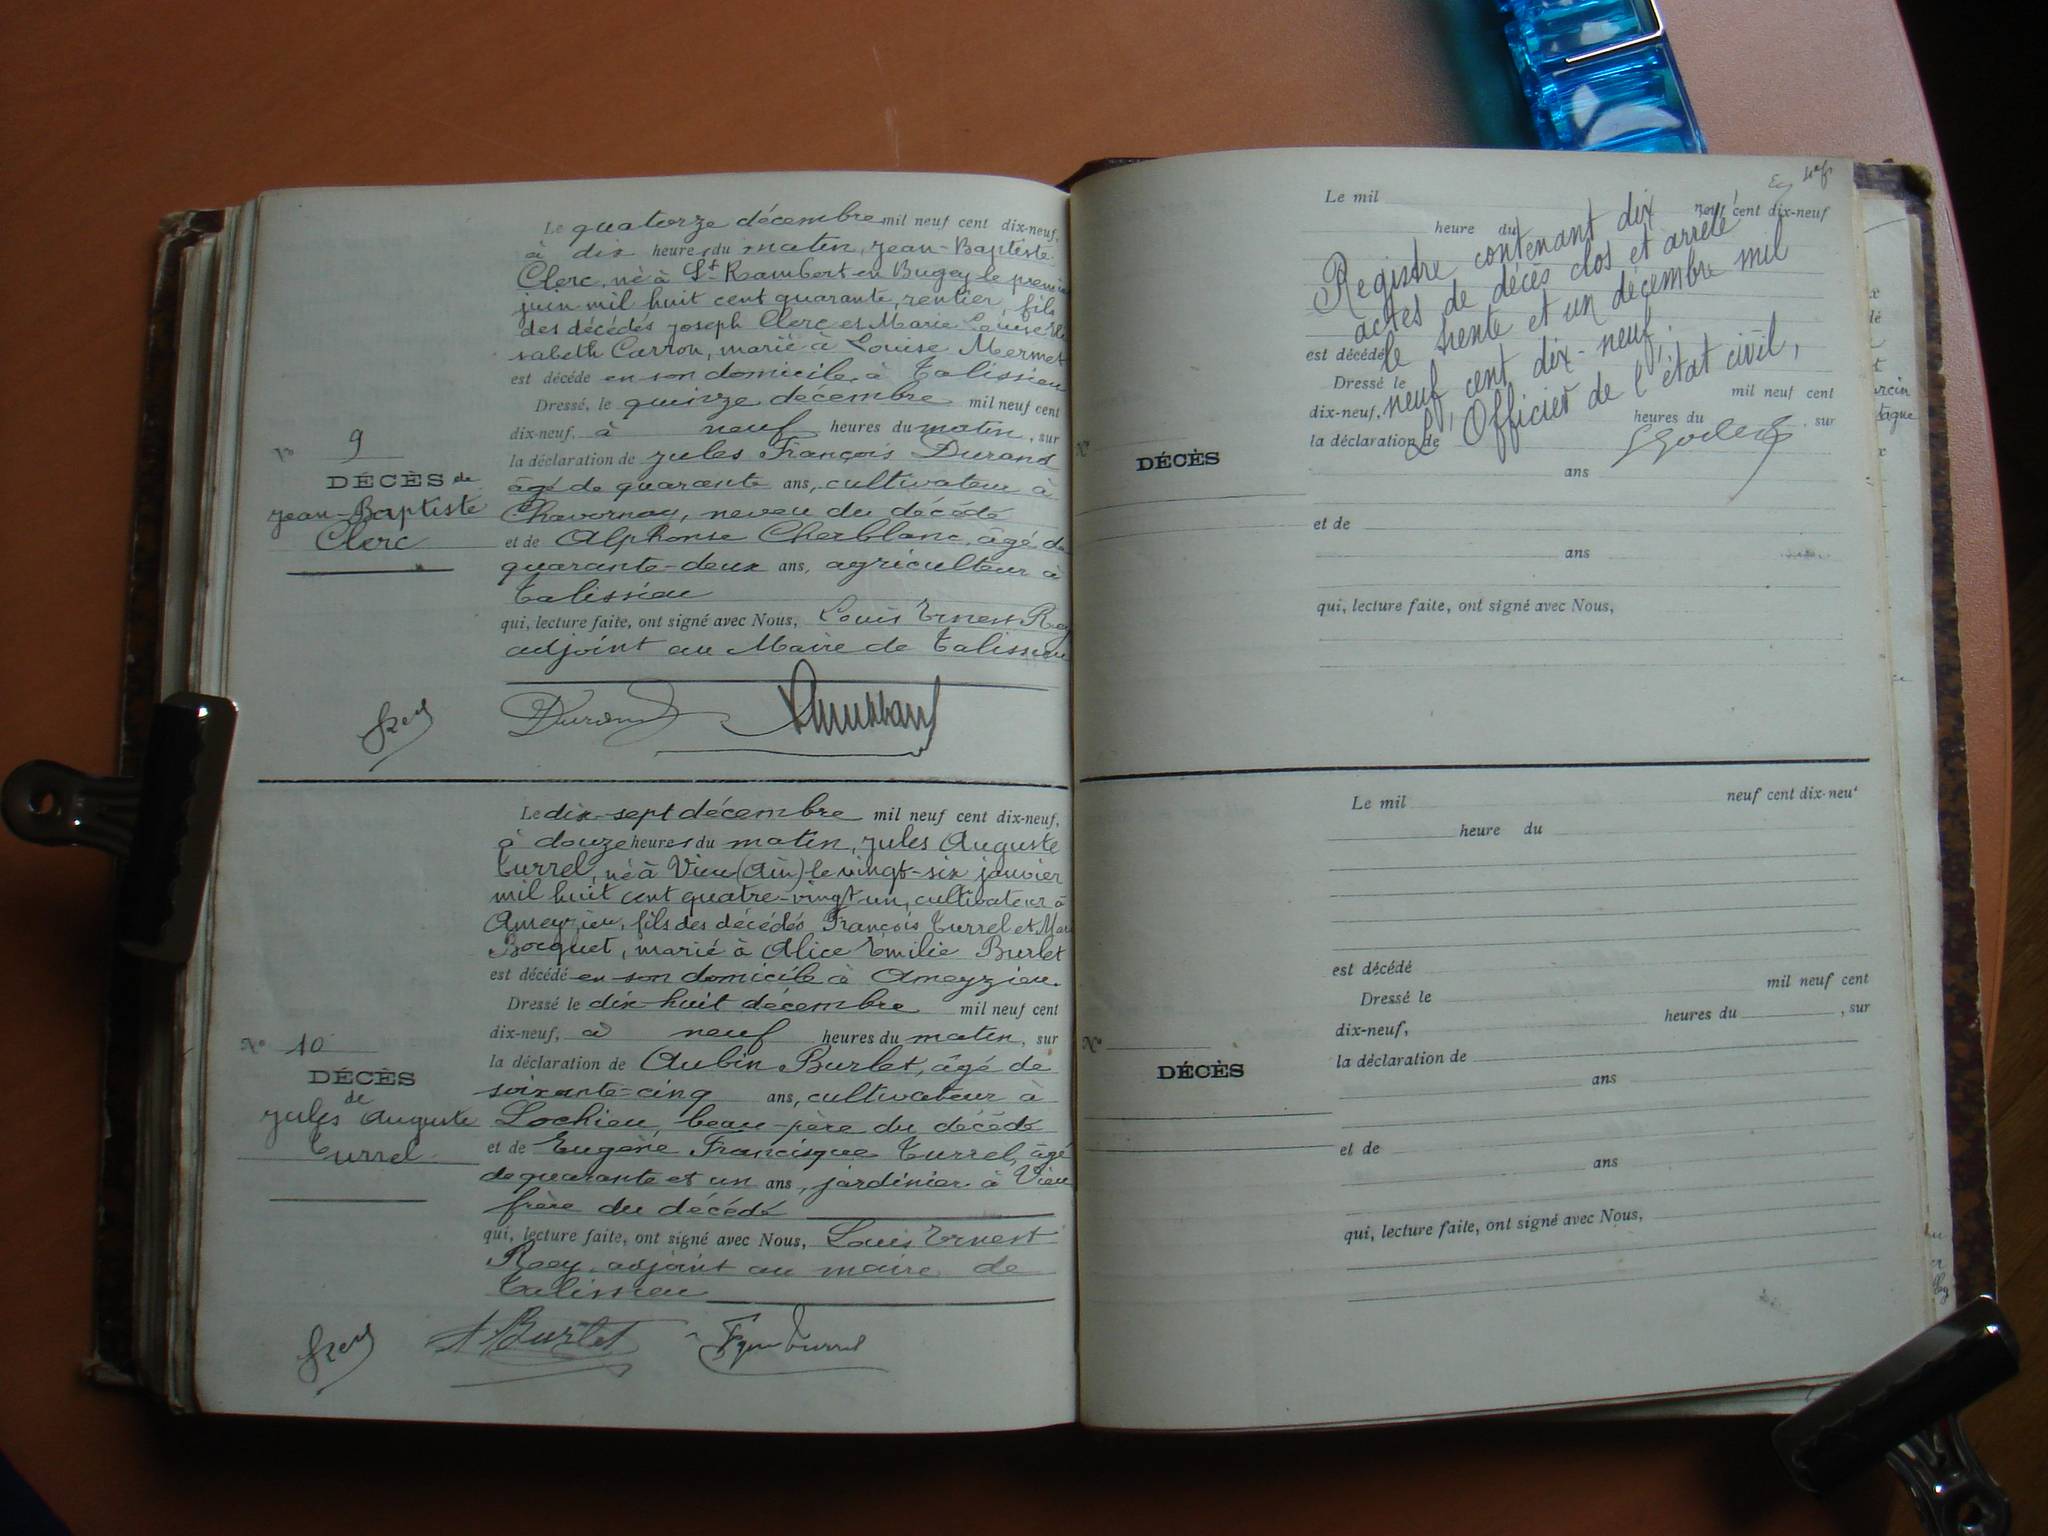 Le quatorze décembre mil neuf cent dix-neuf,
à dix heures du matin, Jean-Baptiste
Clerc, né à St Rambert en Bugey le premier
juin mil huit cent quarante, rentier, fils
des décédés Joseph Clerc et Marie Louise Eli
sabeth Carron, marié à Louise Mermet
est décédé en son domicile, à Talissieu
Dressé, le quinze décembre mil neuf cent
dix-neuf, à neuf heures du matin, sur
la déclaration de Jules François Durand
âgé de quarante ans, cultivateur à
Chavornay, neveu du décédé
et de Alphonse Cherblanc, âgé de
quarante-deux ans, agriculteur à
Talissieu
qui, lecture faite, ont signé avec Nous, Louis Ernest Rey
adjoint au Maire de Talissieu
No 9
DÉCÈS de
Jean-Baptiste
Clerc
Rey Durand
Le dix-sept décembre mil neuf cent dix-neuf,
à douze heures du matin, Jules Auguste
Turrel, né à Vieu (Ain) le vingt-six janvier
mil huit cent quatre-vingt-un, cultivateur à
Ameyzieu, fils des décédés François Turrel et Mar
Bocquet, marié à Alice Emilie Burlet
est décédé en son domicile à Ameyzieu.
Dressé le dix-huit décembre mil neuf cent
dix-neuf, à neuf heures du matin, sur
la déclaration de Aubin Burlet, âgé de
soixante-cinq ans, cultivateur à
Lochieu, beau-père du décédé
et de Eugène Francisque Turrel, âgé
de quarante et un ans, jardinier à Vieu
frère du décédé
qui, lecture faite, ont signé avec Nous, Louis Ernest
Rey, adjoint au maire de
Talissieu
No 10
DÉCÈS
de
Jules Auguste
Turrel
Rey A Burlet Turrel
Le mil neuf cent dix-neuf
heure du
Registre contenant dix
actes de décès clos et arrêté
le trente et un décembre mil
neuf cent dix-neuf.
L'Officier de l'état civil,
est décédé
Dressé le mil neuf cent
dix-neuf, heures du , sur
la déclaration de
ans
No
DÉCÈS
et de
ans
qui, lecture faite, ont signé avec Nous,
Le mil neuf cent dix-neu
heure du
est décédé
Dressé le mil neuf cent
dix-neuf, heures du , sur
la déclaration de
ans
No
DÉCÈS
et de
ans
qui, lecture faite, ont signé avec Nous,